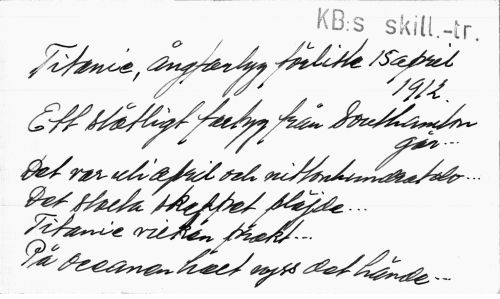 KB:s skill.-tr.
Titanic, ångfartyg förlist 15 april
1912.
Ett ståtligt fartyg från Southamton
går...
Det var uti april och nittonhundratolv...
Det stolta skeppet plöjde...
Titanic vilken prakt...
På oceanen hört nyss det hände...